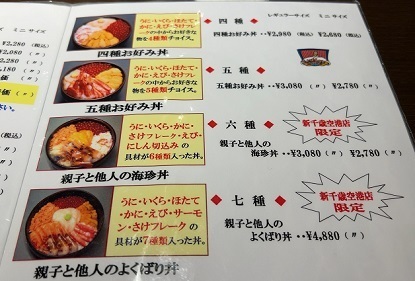 ミニサイズ
¥2,280(税込)
うに・いくら・ほたて
・かに・えび・さけフレーク
の中からお好きな
物を4種類チョイス。
四種お好み丼
◆ 四種 ◆
レギュラーサイズ ミニサイズ
四種お好み丼 ‥¥2,680(税込) ¥2,380(税込)
うに・いくら・ほたて・
かに・えび・さけフレーク
の中からお好きな
物を5種類チョイス。
五種お好み丼
◆ 五種 ◆
五種お好み丼 ‥¥3,080(〃) ¥2,780(〃)
うに・いくら・かに・
さけフレーク・えび・
にしん切込みの
具材が6種類入った丼。
親子と他人の海珍丼
◆ 六種 ◆
新千歳空港店
限定
親子と他人の
海珍丼 ‥¥3,080(〃) ¥2,780(〃)
うに・いくら・ほたて
・かに・えび・サーモ
ン・さけフレークの
具材が7種類入った丼。
親子と他人のよくばり丼
◆ 七種 ◆
新千歳空港店
限定
親子と他人の
よくばり丼 ‥¥4,880(〃)